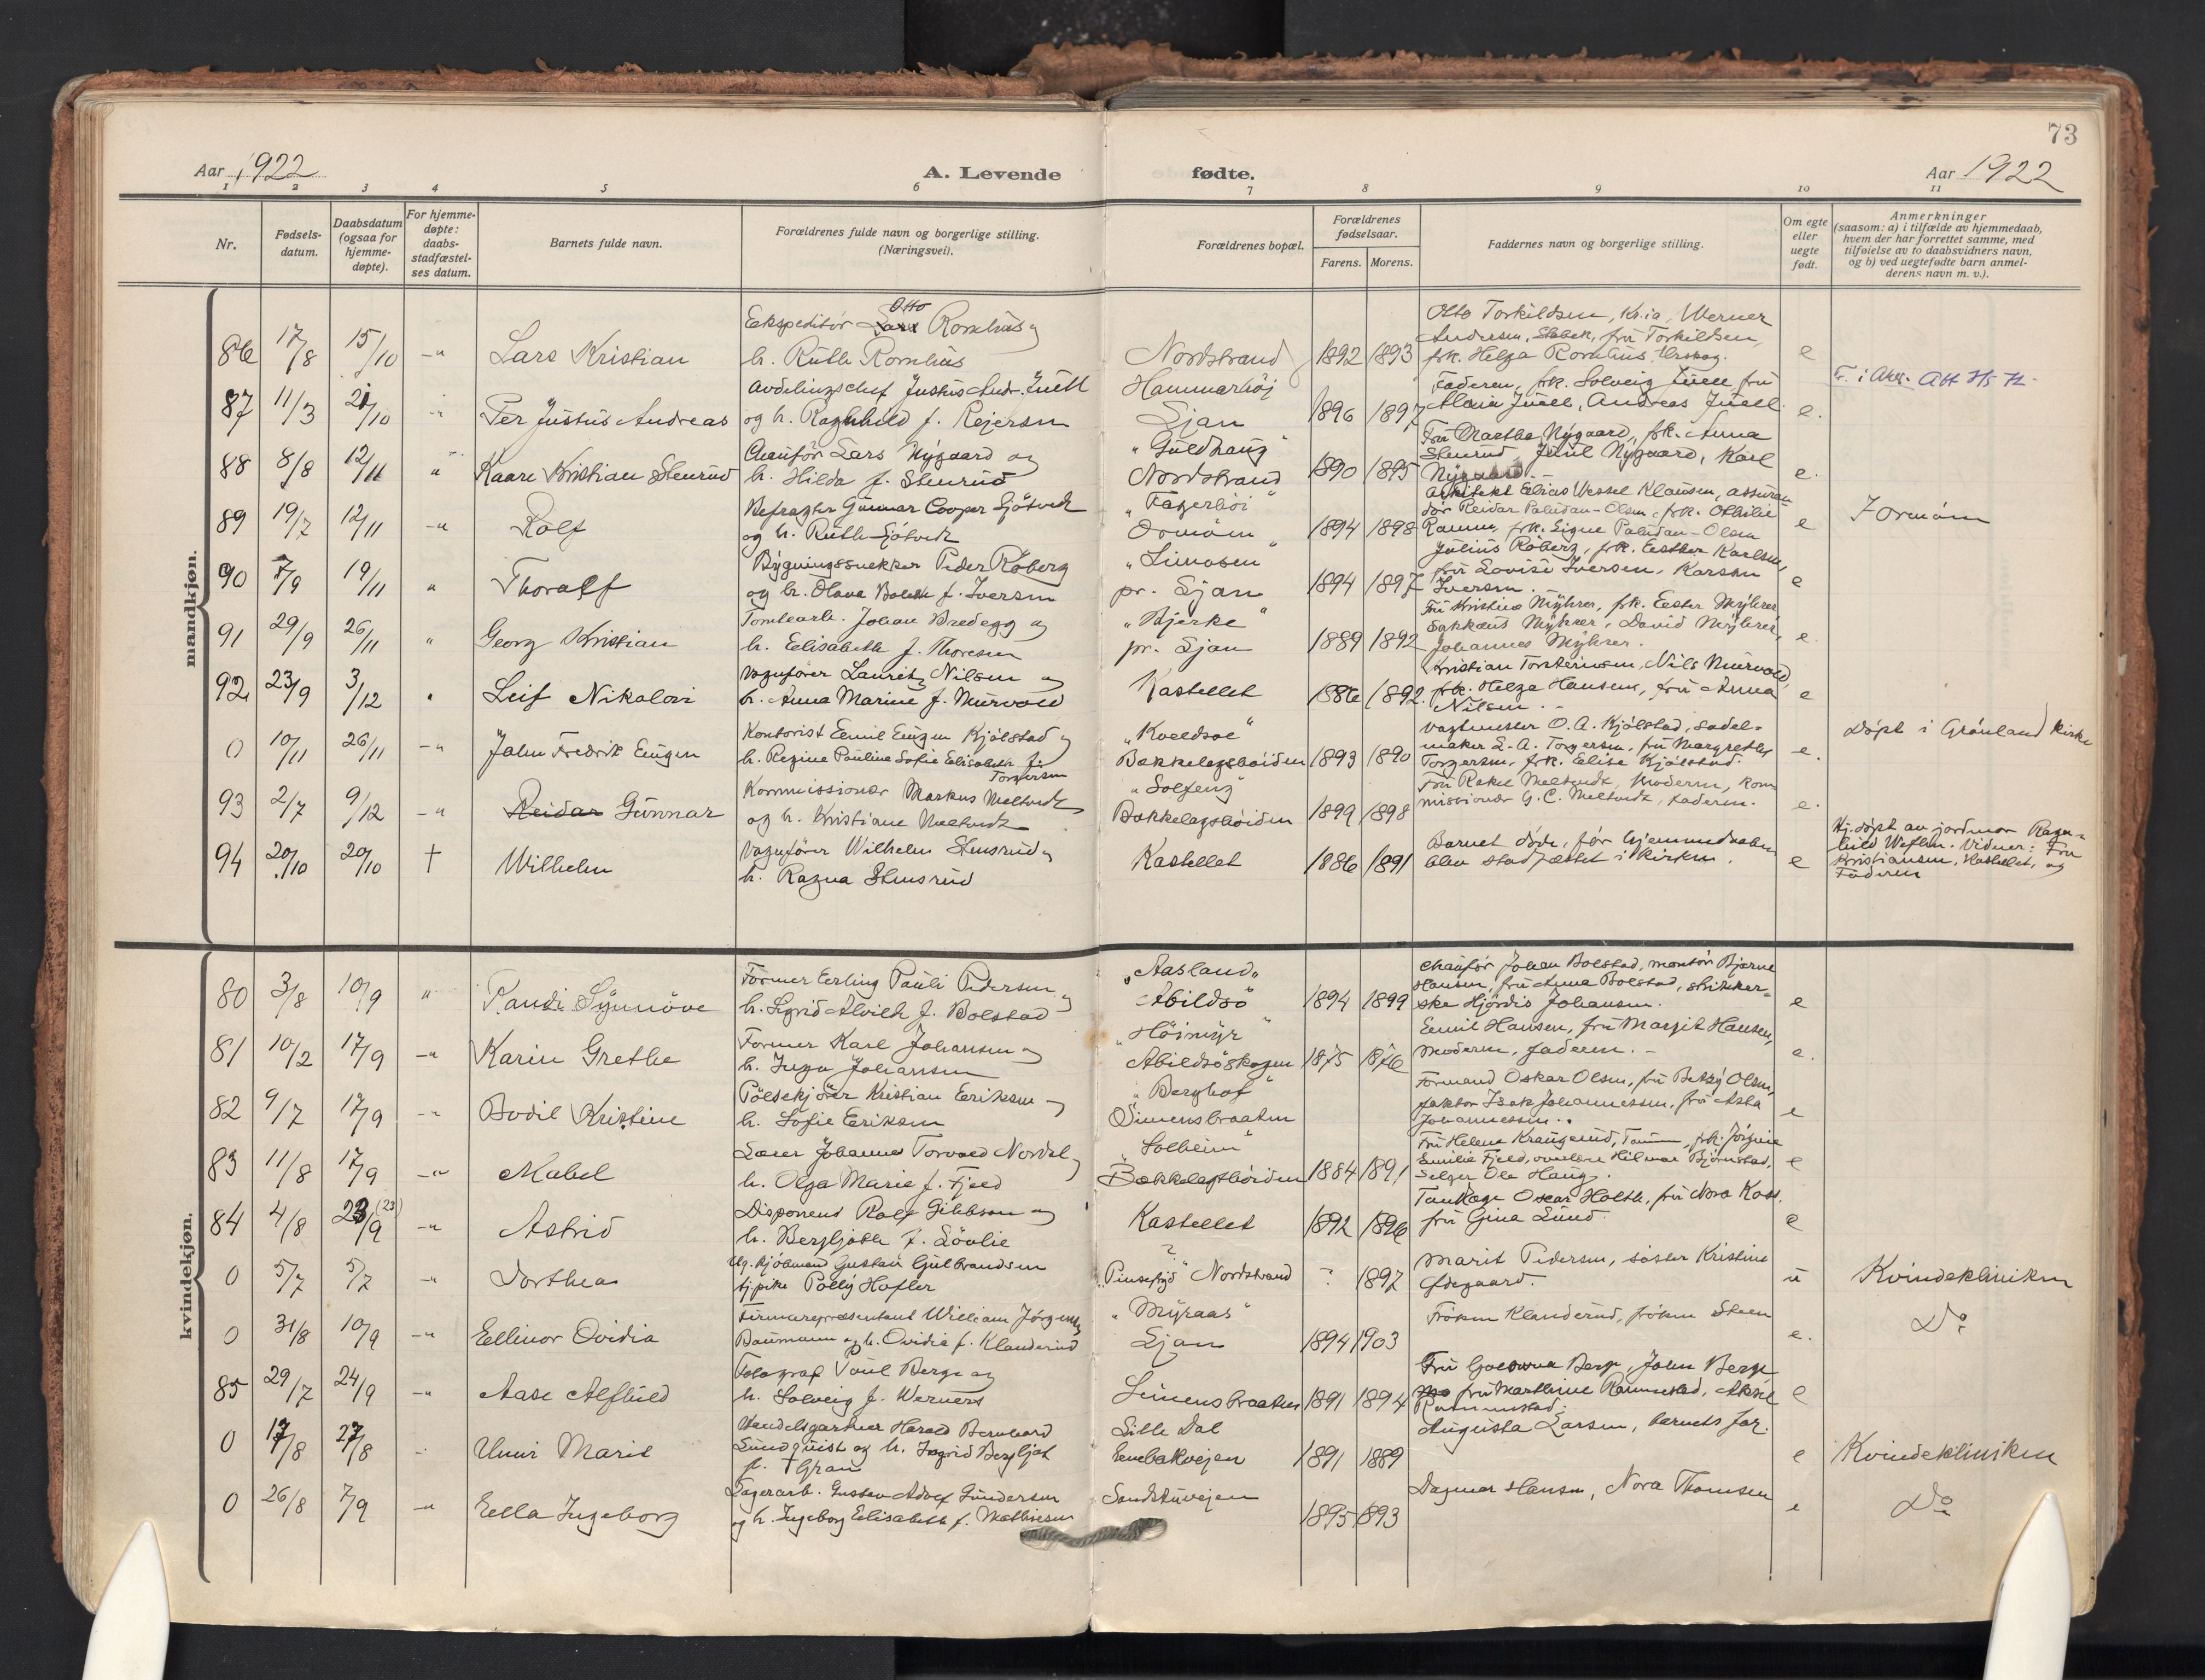 73
Aar 1922
A. Levende fødte.
Aar 1922
1 2 3 4 5 6 7 8 9 10 11
Nr.
Fødsels-
datum.
Daabsdatum
(ogsaa for
hjemme-
døpte).
For hjemme-
døpte:
daabs-
stadfæstel-
ses datum.
Barnets fulde navn.
Forældrenes fulde navn og borgerlige stilling.
(Næringsvei).
Forældrenes bopæl.
Forældrenes
fødselsaar.
Farens. Morens.
Faddernes navn og borgerlige stilling.
Om egte
eller
uegte
født.
Anmerkninger
(saasom: a) i tilfælde av hjemmedaab,
hvem der har forrettet samme, med
tilføielse av to daabsvidners navn,
og b) ved uegtefødte barn anmel-
derens navn m. v.).
mandkjøn.
86 17/8 15/10 -"- Lars Kristian
Ekspeditör Lars Otto Romhus og
h. Ruth Romhus
Nordstrand 1892 1893
Otto Torkildsen, Kr.ia, Werner
Andersen, Stabek, fru Torkildsen,
frk. Helga Romhus, Urskog.
e
87 11/3 21/10 Per Justus Andreas
Avdelingschef Justus Andr. Juell
og h. Ragnhild f. Rejersen
Hammarhöj
Ljan 1896 1897
Faderen, frk. Solveig Juell, fru
Maria Juell, Andreas Juell
e.
88 8/8 12/11 " Kaare Kristian Stenrud
Chauför Lars Nygaard og
h. Hilda f. Stenrud
"Guldhaug"
Nordstrand 1890 1895
Fru Martha Nygaard, frk. Anna
Stenrud, Juul Nygaard, Karl
Nygaard.
e.
89 19/7 12/11 -"- Rolf
Befragter Gunnar Cooper Sjötvedt
og h. Ruth Sjötvedt
"Fagerhöi"
Ormöen 1894 1898
Arkitekt Elias Wessel Klausen, assuran-
dör Reidar Paludan-Olsen, frk. Othilie
Ramm, frk. Signe Paludan-Olsen
e
I Ormöen
90 7/9 19/11 " Thoralf
Bygningssnekker Peder Röberg
og h. Olava f. Iversen
"Limosen"
pr. Ljan 1894 1897
Julius Röberg, frk. Esther Karlsen,
fru Lovise Iversen, Karsten
Iversen.
e
91 29/9 26/11 " Georg Kristian
Tomtearb. Johan Bredegg og
h. Elisabeth f. Thoresen
"Bjerke"
pr. Ljan 1889 1892
Fru Kristine Myhrer, frk. Ester Myhrer,
Sakkæus Myhrer, David Myhrer,
Johannes Myhrer.
e.
92 23/9 3/12 Leif Nikolai
Vognfører Lauritz Nilsen og
h. Anna Marine f. Murvold
Kastellet 1886 1892.
Kristian Torsteinsen, Nils Murvold,
frk. Helga Hansen, fru Anna
Nilsen.
e
0 10/11 26/11 -"- John Fredrik Eugen
Kontorist Emil Eugen Kjölstad og
h. Regine Pauline Sofie Elisabeth f.
Torgersen
"Kveldsol"
Bækkelagshöiden 1893 1890
Vagtmester O. A. Kjölstad, sadel-
maker L. A. Torgersen, fru Margrethe
Torgersen, frk. Elise Kjölstad.
e.
Döpt i Grönland kirke
93 2/7 9/12 -"- Reidar Gunnar
Kommissionær Markus Meltvedt
og h. Kristiane Meltvedt
"Solfeng"
Bækkelagshöiden 1899 1898
Fru Rakel Meltvedt, Moderen, kom-
missionær G. C. Meltvedt, faderen.
e.
94 20/10 20/10 † Wilhelm
Vognförer Wilhelm Stensrud og
h. Ragna Stensrud
Kastellet 1886 1891
Barnet döde, för hjemmedaaben
blev stadfæstet i kirken.
e
Hj.döpt av jordmor Ragn-
hild Wiflen. Vidner: Fru
Kristiansen, Kastellet, og
Faderen
kvindekjøn.
80 3/8 10/9 " Randi Synnöve
Former Erling Pauli Pedersen og
h. Sigrid Alvilh f. Bolstad
"Aasland"
Abildsö 1894 1899
Chauför Johan Bolstad, montör Bjarne
Hansen, fru Anna Bolstad, strikker-
ske Hjördis Johansen.
e
81 10/2 17/9 -"- Karin Grethe
Former Karl Johansen og
h. Inga Johansen
"Höimyr"
Abildsöskogen 1875 1876
Emil Hansen, fru Margit Hansen,
Moderen, faderen.
e.
82 9/7 17/9 -"- Bodil Kristine
Pölsekjörer Kristian Eriksen og
h. Sofie Eriksen
"Berghof"
Simensbraaten
Formand Oskar Olsen, fru Betzy Olsen,
faktor Isak Johannessen, fru Asta
Johannessen.
e
83 11/8 17/9 -"- Mabel
Lærer Johannes Torvald Nordal og
h. Olga Marie f. Fjeld
"Solheim"
Bækkelagshöiden 1884 1891
Fru Helene Kraugerud, frk. Jörgine
Emilie Fjeld, overlærer Hilmar Björnstad,
Selger Ole Haug.
e
84 4/8 23/9 (23) -"- Astrid
Disponent Rolf Gibbson og
h. Bergljoth f. Lövlie
Kastellet 1892 1896
Tandlæge Oscar Holth, fru Nora Koss,
fru Gina Lund.
e
0 5/7 5/7 -"- Dorthea
Ug. kjöbmand Gustav Gulbrandsen
tj.pike Polly Hofler
?
"Pinsefryd" Nordstrand ? 1897
Marit Pedersen, söster Kristine
Ödegaard.
u
Kvindeklinikken
0 31/8 10/9 -"- Ellinor Ovidia
Firmarepræsentant William Jörgensen
Baumann og h. Ovidia f. Klanderud
"Myraas"
Ljan 1894 1903
Fröken Klanderud, fröken Steen
e.
Do
85 29/7 24/9 -"- Aase Alfhild
Fotograf Poul Berge og
h. Solveig f. Werners
Simensbraaten 1891 1894
Fru Berge, John Berge
fru Marthine Rammestad, Aksel
Rammestad.
e
0 17/8 27/8 Unni Marit
Handelsgartner Harald Bernhard
Lundquist og h. Ingrid Bergljot
f. Gran
Lille Dal
Enebakveien 1891 1889
Augusta Larsen, barnets far.
e
Kvindeklinikken
0 26/8 7/9 -"- Ella Ingeborg
Lagerarb. Gustav Adolf Gundersen
og h. Ingeborg Elisabeth f. Mathiesen
Sandstuveien
1895 1893
Dagmar Hansen, Nora Thomsen
e
Do